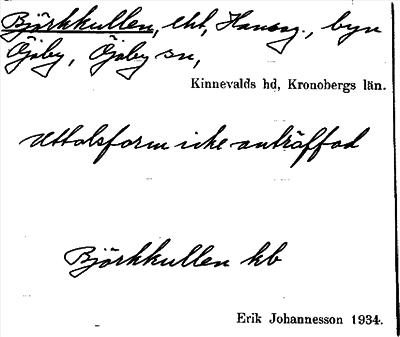 Björkkullen, lht, Hanag., byn
Öjaby, Öjaby sn,
Kinnevalds hd, Kronobergs län.
Uttalsform icke anträffad
Björkkullen kb
Erik Johannesson 1934.